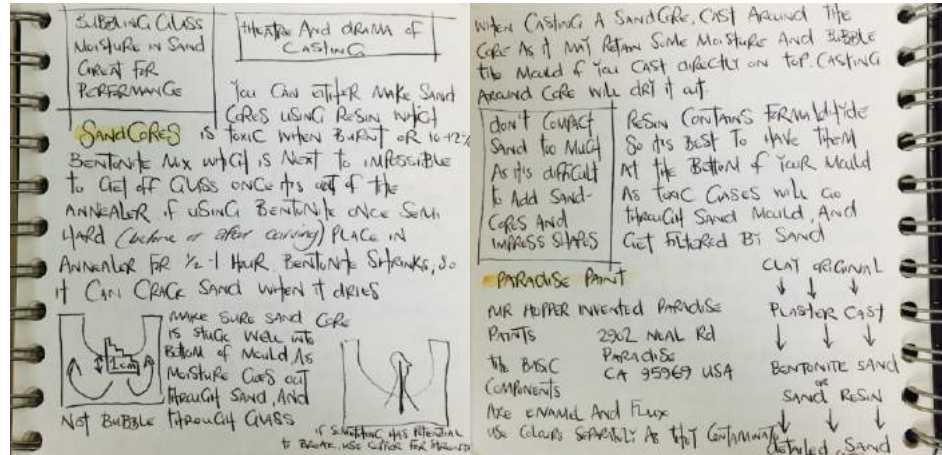 BUBBLING GLASS
MOISTURE IN SAND
GREAT FOR
PERFORMANCE
THEATRE AND DRAMA OF
CASTING
YOU CAN EITHER MAKE SAND
CORES USING RESIN WHICH
SANDCORES IS TOXIC WHEN BURNT OR 10-12%
BENTONITE MIX WHICH IS NEXT TO IMPOSSIBLE
TO GET OFF GLASS ONCE ITS OUT OF THE
ANNEALER. IF USING BENTONITE ONCE SEMI
HARD (before or after carving) PLACE IN
ANNEALER FOR 1/2-1 HOUR. BENTONITE SHRINKS, SO
IT CAN CRACK SAND WHEN IT DRIES
1cm
MAKE SURE SAND CORE
IS STUCK WELL INTO
BOTTOM OF MOULD AS
MOISTURE GOES OUT
THROUGH SAND, AND
NOT BUBBLE THROUGH GLASS
IF SOMETHING HAS POTENTIAL
TO BREAK, USE COPPER FOR STRENGTH
WHEN CASTING A SANDCORE, CAST AROUND THE
CORE AS IT MAY RETAIN SOME MOISTURE AND BUBBLE
THE MOULD IF YOU CAST DIRECTLY ON TOP. CASTING
AROUND CORE WILL DRY IT OUT.
DON'T COMPACT
SAND TOO MUCH
AS ITS DIFFICULT
TO ADD SAND-
CORES AND
IMPRESS SHAPES
RESIN CONTAINS FORMALDEHIDE
SO ITS BEST TO HAVE THEM
AT THE BOTTOM OF YOUR MOULD
AS TOXIC GASES WILL GO
THROUGH SAND MOULD, AND
GET FILTERED BY SAND
PARADISE PAINT
MR HOPPER INVENTED PARADISE
PAINTS 2902 NEAL Rd
PARADISE
CA 95969 USA
THE BASIC
COMPONENTS
ARE ENAMEL AND FLUX
USE COLOURS SEPARATELY AS THEY CONTAMINATE
CLAY ORIGINAL
PLASTER CAST
BENTONITE SAND
OR
SAND RESIN
detailed SAND